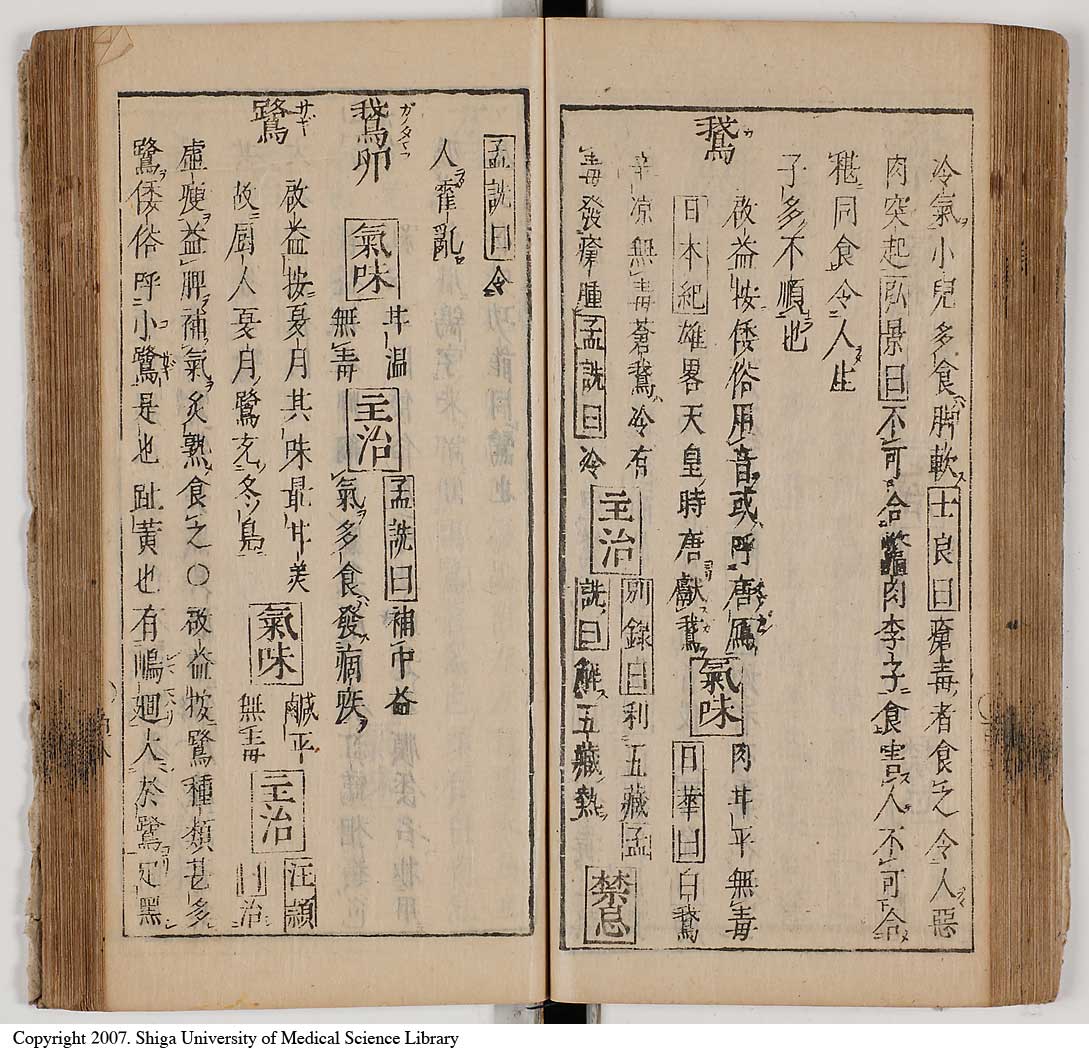 冷氣小兒多食脚軟士良曰瘡毒者食之令人惡
肉突起弘景曰不可合鼈肉李子食害人不可合
椹同食令人生
子多不順也
鵞
啟益按倭俗用音或呼唐鴈
日本紀雄畧天皇時唐獻鵞
氣味
肉甘平無毒
日華曰白鵞
辛涼無毒蒼鵞冷有
毒發瘡腫孟詵曰冷
主治
別錄曰利五藏孟
詵曰解五藏熱
禁忌
孟詵曰令
人霍亂
鵞卵
ガノタマコ
氣味
甘温
無毒
主治
孟詵曰補中益
氣多食發痼疾
鷺
サギ
啟益按夏月其味最甘美
故厨人夏月鷺充冬鳥
氣味
鹹平
無毒
主治
汪頴
曰治
虛瘦益脾補氣炙熟食之○啟益按鷺種類甚多
鷺倭俗呼小鷺是也趾黄也有嶋廻大於鷺足黑
Copyright 2007. Shiga University of Medical Science Library